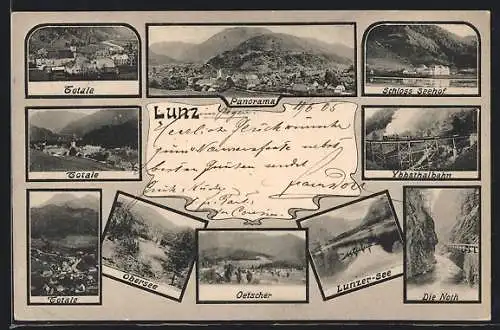 Totale
Panorama
Schloss Seehof
Lunz
4/6 05
Herzlichste Glückwünsche
zum Namensfeste nebst
besten Grüßen sendet
Totale
Ybbsthalbahn
Totale
Obersee
Oetscher
Lunzer-See
Die Noth